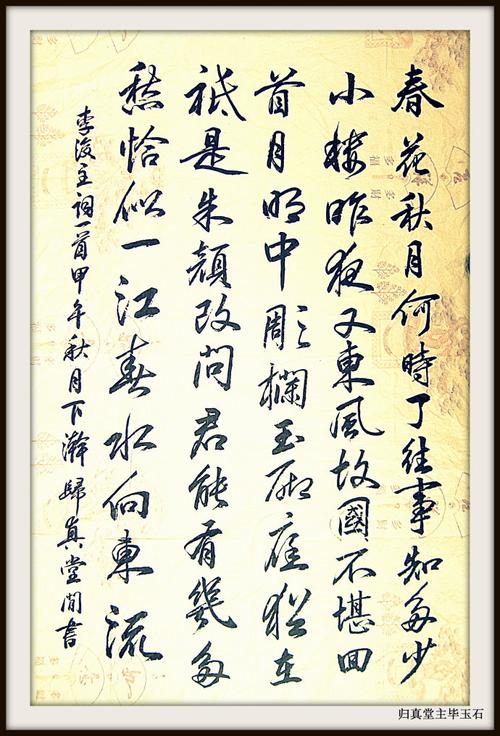 春花秋月何時了往事知多少
小樓昨夜又東風故國不堪回
首月明中彫欄玉砌應猶在
祇是朱顏改問君能有幾多
愁恰似一江春水向東流
李後主詞一首甲午秋月下澣歸真堂閒書
归真堂主毕玉石